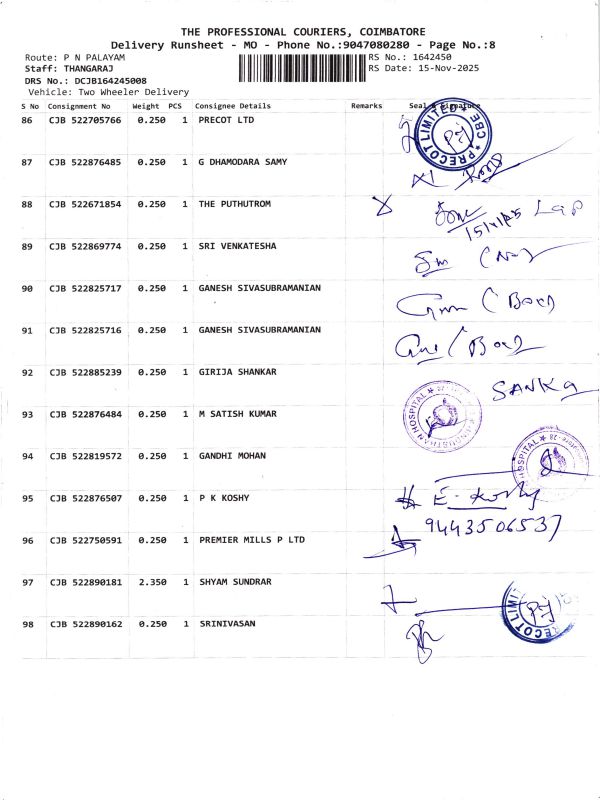 THE PROFESSIONAL COURIERS, COIMBATORE
Delivery Runsheet - MO - Phone No.:9047080280 - Page No.:8
Route: P N PALAYAM RS No.: 1642450
Staff: THANGARAJ RS Date: 15-Nov-2025
DRS No.: DCJB164245008
Vehicle: Two Wheeler Delivery
S No Consignment No Weight PCS Consignee Details Remarks Seal & Signature
86 CJB 522705766 0.250 1 PRECOT LTD PRECOT LIMITED CBE
87 CJB 522876485 0.250 1 G DHAMODARA SAMY
88 CJB 522671854 0.250 1 THE PUTHUTROM
15/11/25
89 CJB 522869774 0.250 1 SRI VENKATESHA
90 CJB 522825717 0.250 1 GANESH SIVASUBRAMANIAN
91 CJB 522825716 0.250 1 GANESH SIVASUBRAMANIAN
92 CJB 522885239 0.250 1 GIRIJA SHANKAR
93 CJB 522876484 0.250 1 M SATISH KUMAR HOSPITAL
94 CJB 522819572 0.250 1 GANDHI MOHAN HOSPITAL
95 CJB 522876507 0.250 1 P K KOSHY E. Koshy
9443506537
96 CJB 522750591 0.250 1 PREMIER MILLS P LTD
97 CJB 522890181 2.350 1 SHYAM SUNDRAR
98 CJB 522890162 0.250 1 SRINIVASAN PRECOT LIMIT